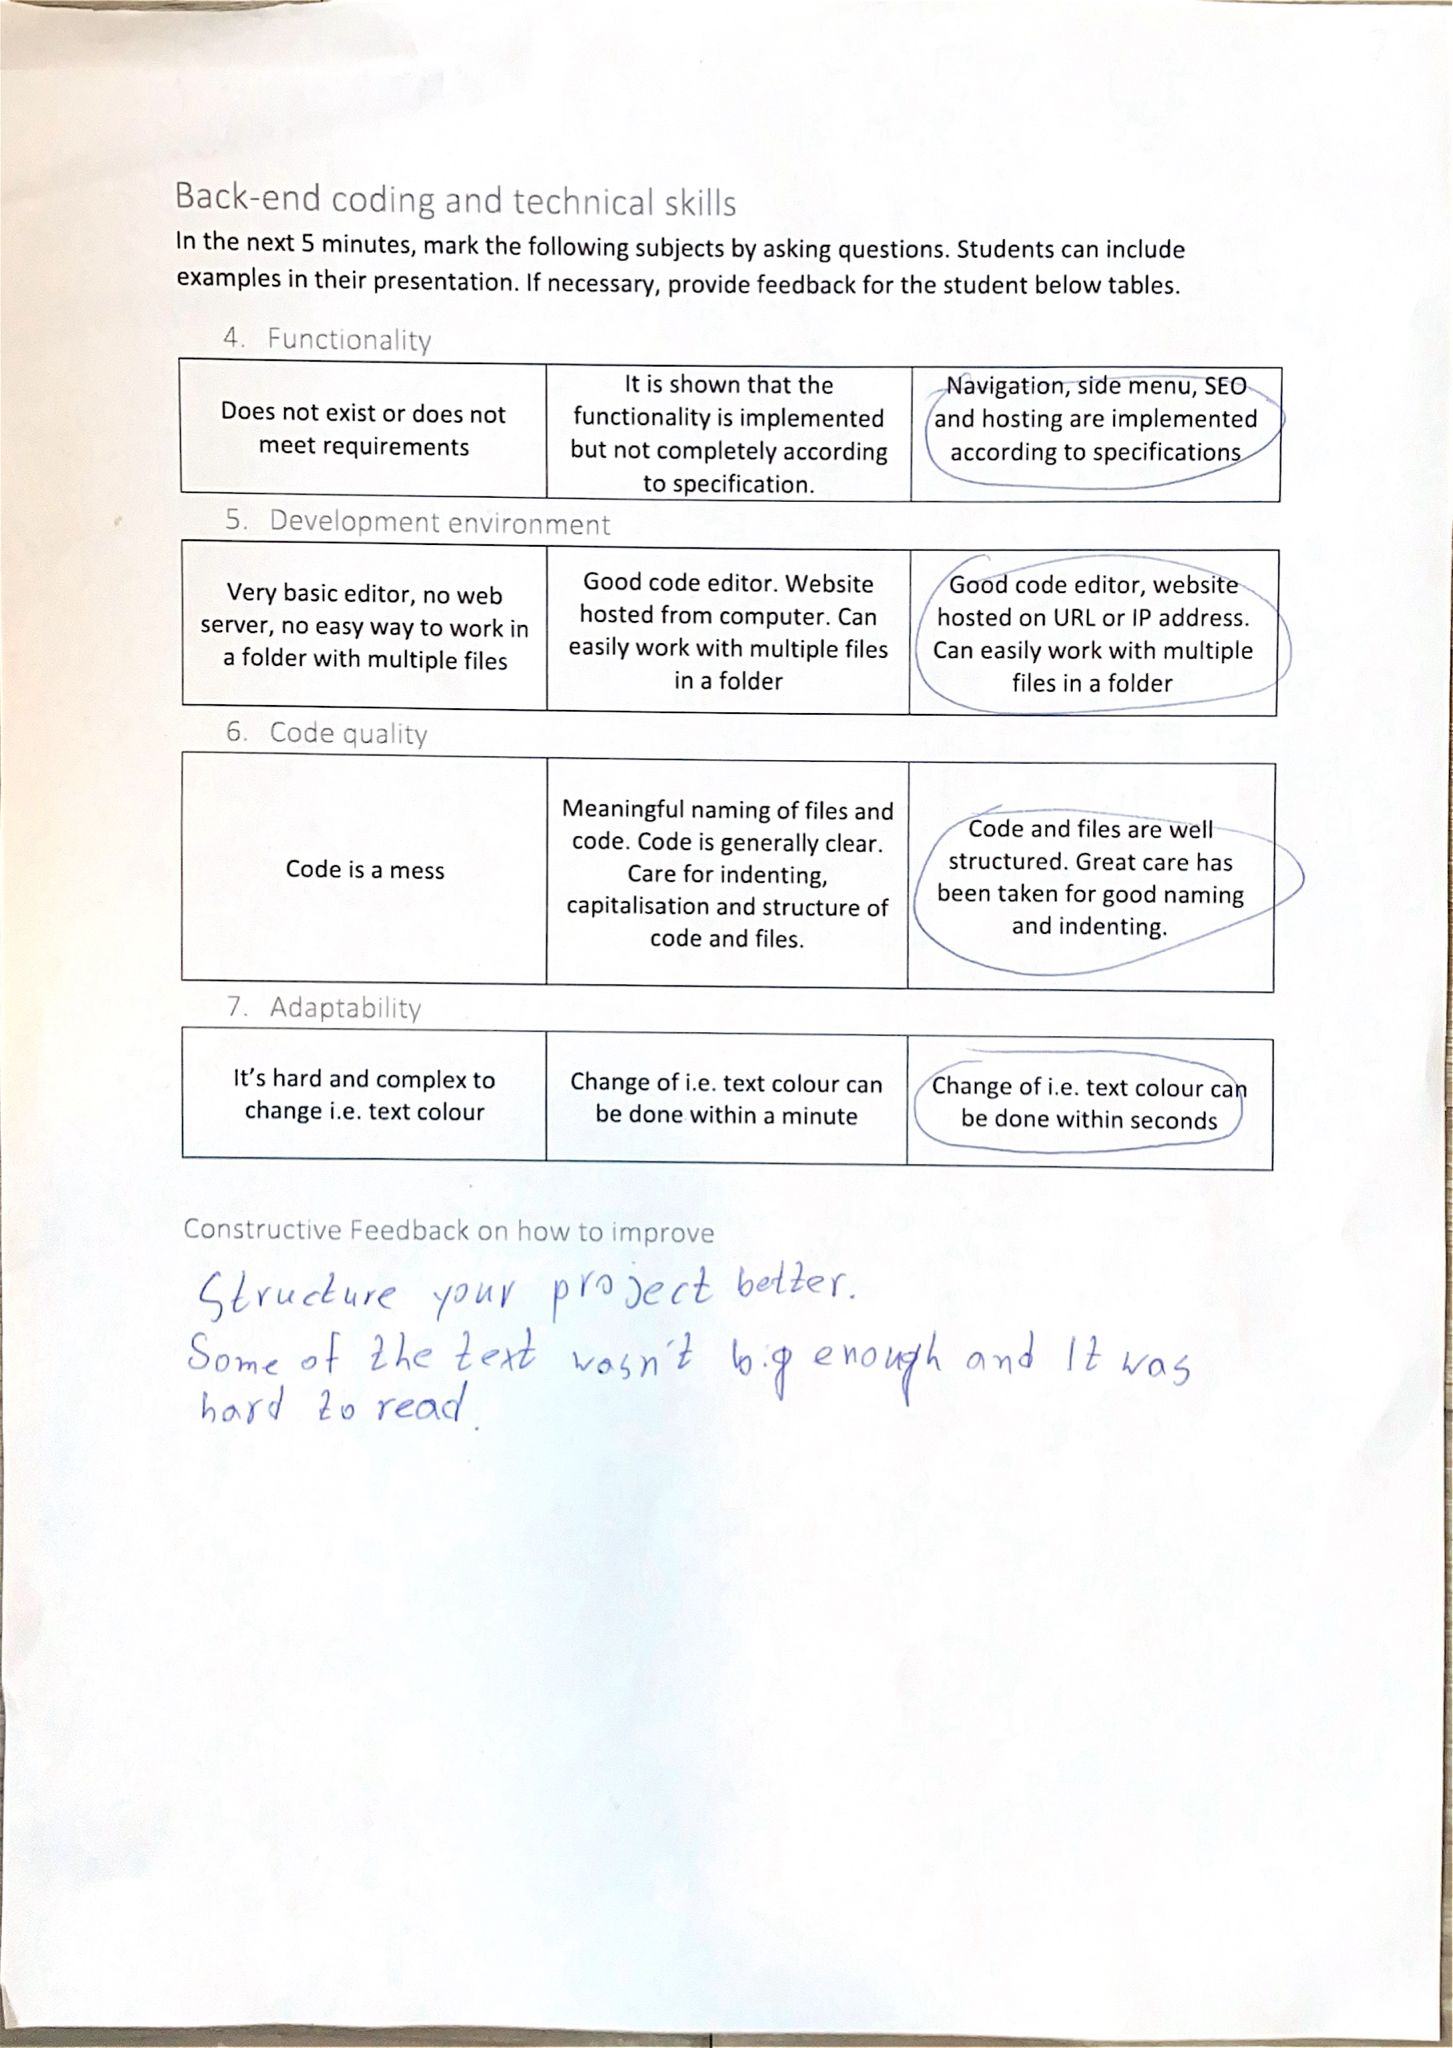 Back-end coding and technical skills
In the next 5 minutes, mark the following subjects by asking questions. Students can include
examples in their presentation. If necessary, provide feedback for the student below tables.
4. Functionality
Does not exist or does not
meet requirements
It is shown that the
functionality is implemented
but not completely according
to specification.
Navigation, side menu, SEO
and hosting are implemented
according to specifications
5. Development environment
Very basic editor, no web
server, no easy way to work in
a folder with multiple files
Good code editor. Website
hosted from computer. Can
easily work with multiple files
in a folder
Good code editor, website
hosted on URL or IP address.
Can easily work with multiple
files in a folder
6. Code quality
Code is a mess
Meaningful naming of files and
code. Code is generally clear.
Care for indenting,
capitalisation and structure of
code and files.
Code and files are well
structured. Great care has
been taken for good naming
and indenting.
7. Adaptability
It's hard and complex to
change i.e. text colour
Change of i.e. text colour can
be done within a minute
Change of i.e. text colour can
be done within seconds
Constructive Feedback on how to improve
Structure your project better.
Some of the text wasn't big enough and It was
hard to read.